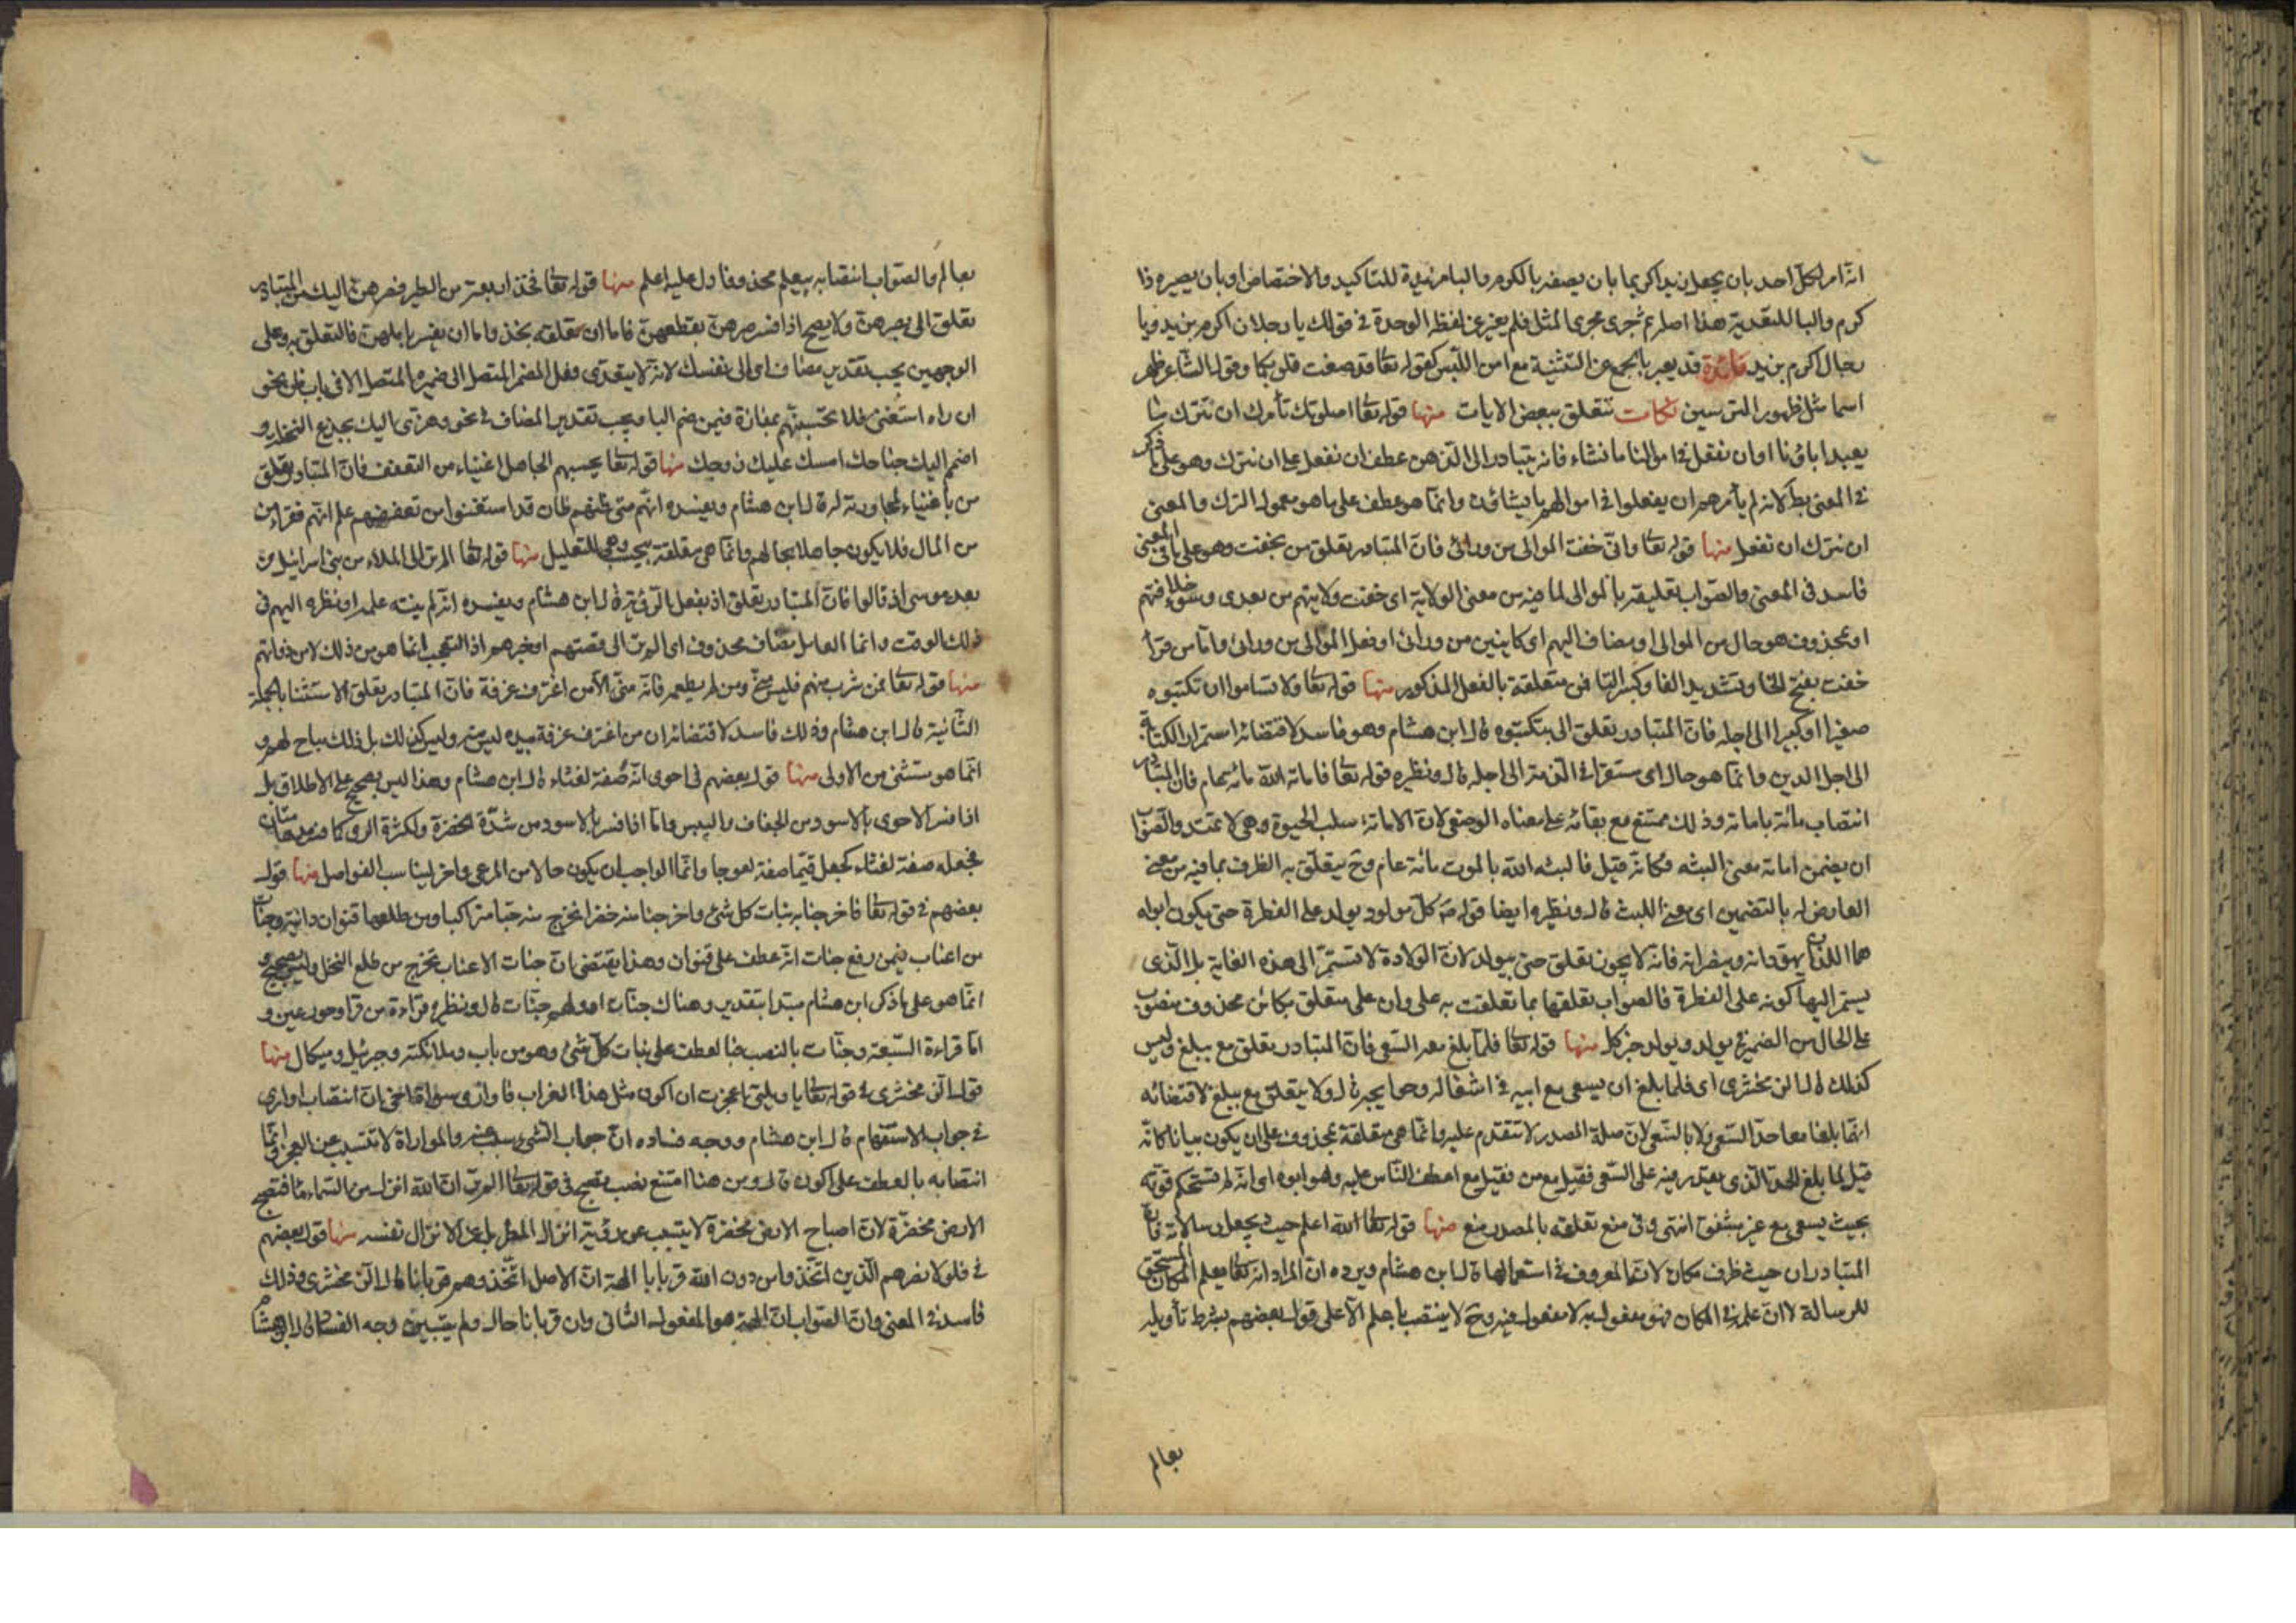 انه امر لكل احد بان يجعل زيدا كريما بان يصفه بالكرم والبا مزيدة للتاكيد والاختصاص او بان يصيره ذا
كرم والبا للتعدية هذا اصله ثم جرى مجرى المثل فلم يغير عن لفظه الوحدة في قولك يا رجلان اكرم بزيد ويا
رجال اكرم بزيد فائدة قد يعبر بالجمع عن التثنية مع امن اللبس كقوله تعا قد صغت قلوبكما وقول الشاعر ظهر
اهما مثل ظهور الترسين نكات تتعلق ببعض الايات منها قوله تعا اصلوتك تأمرك ان نترك ما
يعبد اباؤنا او ان نفعل في اموالنا ما نشاء فانه يتبادر الى الذهن عطف ان نفعل على ان نترك وهو على ما ذكر
في المعنى بط لانه لم يأمرهم ان يفعلوا في اموالهم ما يشاؤن وانما هو عطف على ما هو معمول الترك والمعنى
ان نترك ان نفعل منها قوله تعا وانى خفت الموالى من ورائى فان المتبادر تعلق من بخفت وهو على ما في المعنى
فاسد في المعنى والصواب تعليقه بالموالى لما فيه من معنى الولاية اى خفت ولايتهم من بعدى وسوء خلافتهم
او بمحذوف هو حال من الموالى او مضاف اليهم اى كاينين من ورائى او فعل الموالى من ورائى واما من قرأ
خفت بفتح الخا وتشديد الفا وكسر التا فمن متعلقة بالفعل المذكور منها قوله تعا ولا تساموا ان تكتبوه
صغيرا او كبيرا الى اجله فان المتبادر تعلق الى بتكتبوه قال ابن هشام وهو فاسد لاقتضائه استمرار الكتابة
الى اجل الدين وانما هو حال اى مستقرا في الذمة الى اجله قال ونظيره قوله تعا فاماته الله مائة عام فان المتبادر
انتصاب مائة باماته وذلك ممتنع مع بقائه على معناه الوضعى لان الاماتة سلب الحيوة وهى لا تمتد والصواب
ان يضمن اماته معنى البثه فكانه قيل فالبثه الله بالموت مائة عام وح يتعلق به الظرف بما فيه من معنى
العارض له بالتضمين اى معنى اللبث قال ونظيره ايضا قوله ص كل مولود يولد على الفطرة حتى يكون ابواه
هما اللذان يهودانه وينصرانه فانه لا يجوز تعلق حتى بيولد لان الولادة لا تستمر الى هذه الغاية بل الذى
يستمر اليها كونه على الفطرة فالصواب تعلقها بما تعلقت به على وان على متعلق بكائن محذوف منصوب
على الحال من الضمير في يولد ويولد خبر كل منها قوله تعا فلما بلغ معه السعى فان المتبادر تعلق مع ببلغ وليس
كذلك قال الزمخشرى اى فلما بلغ ان يسعى مع ابيه في اشغاله وحوايجه قال ولا يتعلق مع ببلغ لاقتضائه
انهما بلغا معا حد السعى ولا بالسعى لان صلة المصدر لا تتقدم عليه وانما هى متعلقة بمحذوف على ان يكون بيانا كانه
قيل لما بلغ الحد الذى يقدر فيه على السعى فقيل مع من فقيل مع اعطف الناس عليه وهو ابوه اى انه لم تستحكم قوته
بحيث يسعى مع غير مشفق انتهى وفى منع تعلقه بالمصدر منع منها قوله تعا الله اعلم حيث يجعل رسالاته فان
المتبادر ان حيث ظرف مكان لانه المعروف في استعمالها قال ابن هشام ويرده ان المراد انه تعا يعلم المكان المستحق
للرسالة لا ان علمه في المكان فهو مفعول به لا مفعول فيه وح لا ينتصب باعلم الا على قول بعضهم بشرط تأويله
بعالم
بعالم والصواب انتصابه بيعلم محذوفا دل عليه اعلم منها قوله تعا فخذ اربعة من الطير فصرهن اليك فان المتبادر
تعلق الى بصرهن ولا يصح اذا فسر صرهن بقطعهن فاما ان تعلقه بخذ واما ان يفسر باملهن فالتعلق به وعلى
الوجهين يجب تقدير مضاف اى الى نفسك لانه لا يتعدى فعل المضمر المتصل الى ضميره المتصل الا في باب ظن نحو
ان راه استغنى فلا تحسبنهم بمفازة فيمن ضم البا ويجب تقدير المضاف في نحو وهزى اليك بجذع النخلة و
اضمم اليك جناحك امسك عليك زوجك منها قوله تعا يحسبهم الجاهل اغنياء من التعفف فان المتبادر تعلق
من باغنياء لمجاورته له قال ابن هشام ويفسده انهم متى ظنهم ظان قد استغنوا من تعففهم علم انهم فقراء من
من المال فلا يكون جاهلا بحالهم وانما هى متعلقة بيحسب وهى للتعليل منها قوله تعا الم تر الى الملاء من بنى اسرائيل من
بعد موسى اذ قالوا فان المتبادر تعلق اذ بفعل الرؤية قال ابن هشام ويفسده انه لم ينته علمه او نظره اليهم في
ذلك الوقت وانما العامل مضاف محذوف اى الم تر الى قصتهم او خبرهم اذ التعجب انما هو من ذلك لا من ذواتهم
منها قوله تعا فمن شرب منه فليس منى ومن لم يطعمه فانه منى الا من اغترف غرفة فان المتبادر تعلق الاستثنا بالجملة
الثانية قال ابن هشام وذلك فاسد لاقتضائه ان من اغترف غرفة بيده ليس منه وليس كذلك بل ذلك مباح لهم و
انما هو مستثنى من الاولى منها قول بعضهم في احوى انه صفة لغثاء قال ابن هشام وهذا ليس بصحيح على الاطلاق بل
اذا فسر الاحوى بالاسود من الجفاف واليبس واما اذا فسر بالاسود من شدة الخضرة ولكثرة الرى كما فسر مدهامتان
فجعله صفة لغثاء كجعل قيما صفة لعوجا وانما الواجب ان يكون حالا من المرعى واخر ليناسب الفواصل منها قول
بعضهم في قوله تعا فاخرجنا به نبات كل شئ فاخرجنا منه خضرا نخرج منه حبا متراكبا ومن طلعها قنوان دانية وجنات
من اعناب فيمن رفع جنات انه عطف على قنوان وهذا يقتضى ان جنات الاعناب تخرج من طلع النخل وليس بصحيح و
انما هو على ما ذكر ابن هشام مبتدا بتقدير وهناك جنات او ولهم جنات قال ونظيره قراءة من قرأ وحور عين و
اما قراءة السبعة وجنات بالنصب فبالعطف على نبات كل شئ وهو من باب وملائكته وجبرئيل وميكال منها
قول الزمخشرى في قوله تعا يا ويلتى اعجزت ان اكون مثل هذا الغراب فاوارى سواة اخى ان انتصاب اوارى
في جواب الاستفهام قال ابن هشام ووجه فساده ان جواب الشئ مسبب عنه والمواراة لا تتسبب عن العجز وانما
انتصابه بالعطف على اكون قال ومن هنا امتنع نصب تصبح في قوله تعا الم تر ان الله انزل من السماء ماء فتصبح
الارض مخضرة لان اصباح الارض مخضرة لا يتسبب عن رؤية انزال المطر بل عن الانزال نفسه منها قول بعضهم
في فلولا نصرهم الذين اتخذوا من دون الله قربانا الهة ان الاصل اتخذوهم قربانا قال الزمخشرى وذلك
فاسد في المعنى وان الصواب ان الهة هو المفعول الثانى وان قربانا حال ولم يتبين وجه الفساد قال ابن هشام